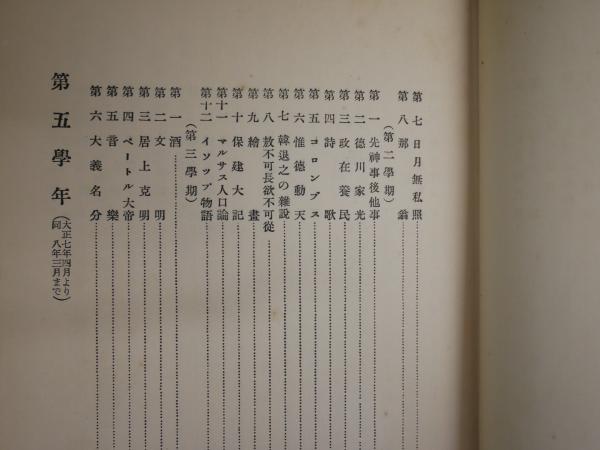 第七 日月無私照
第八 那翁
（第二學期）
第一 先神事後他事
第二 德川家光
第三 政在養民
第四 詩歌
第五 コロンブス
第六 惟德動天
第七 韓退之の雜說
第八 敖不可長欲不可從
第九 繪畫
第十 保建大記
第十一 マルサス人口論
第十二 イソップ物語
（第三學期）
第一 酒
第二 文明
第三 居上克明
第四 ペートル大帝
第五 音樂
第六 大義名分
第五學年（大正七年四月より同八年三月まで）